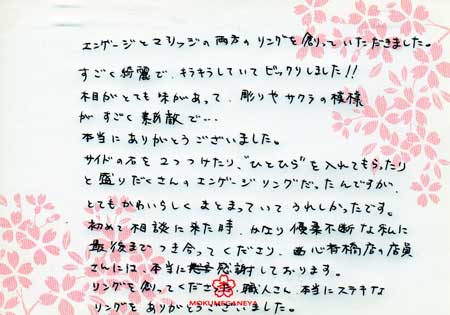 エンゲージとマリッジの両方のリングを創っていただきました。
すごく綺麗で、キラキラしていてビックリしました!!
木目がとても味があって、彫りやサクラの模様
がすごく素敵で…
本当にありがとうございました。
サイドの石を2つつけたり、"ひとひら"を入れてもらったり
と盛りだくさんのエンゲージリングだったんですが、
とてもかわいらしくまとまっていてうれしかったです。
初めて相談に来た時、かなり優柔不断な私に
最後までつき合ってくださり、西心斎橋店の店員
さんには、本当に感謝しております。
リングを創ってくださった職人さん、本当にステキな
リングをありがとうございました。
MOKUMEGANEYA